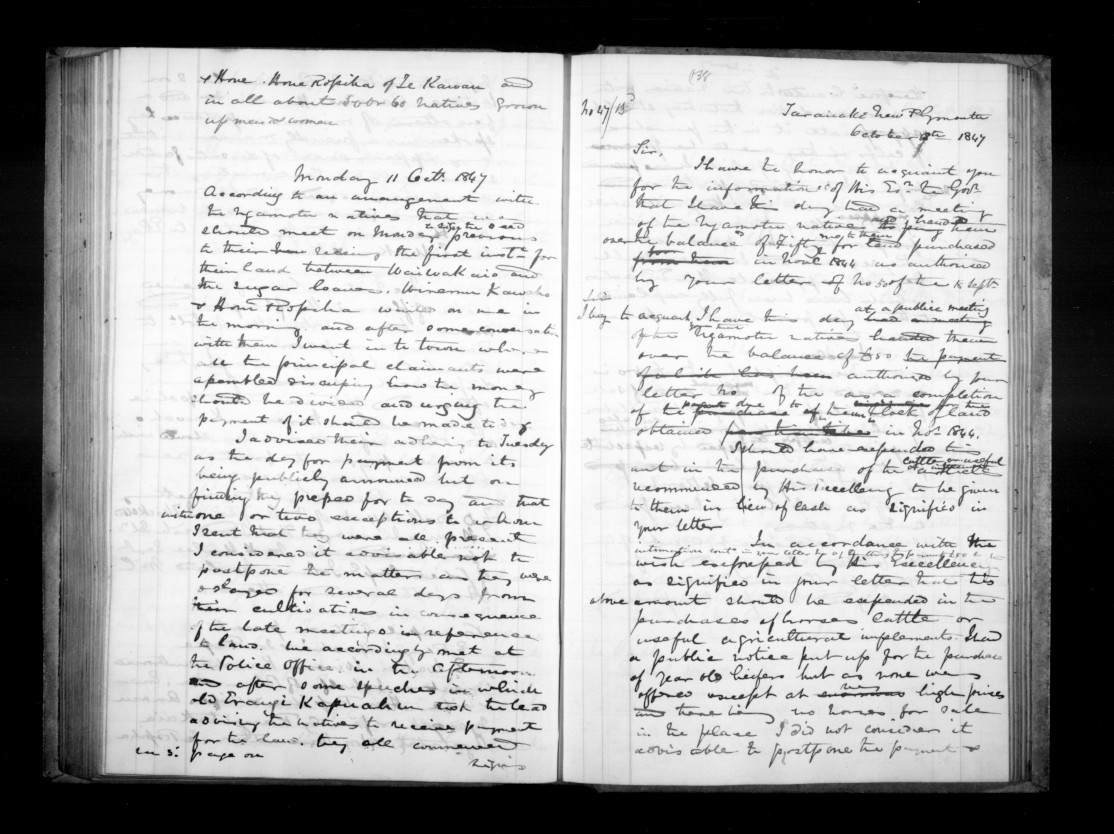 & Hone Hone Ropiha of Te Kawau and
in all about 50 or 60 natives grown
up men & women
Monday 11 Oct. 1847
According to an arrangement with
the Ngamotu natives that we
should meet on Monday previous
to their the first inst. for
their land between Waiwakaio and
the Sugar loaves. Wiremu Kawaho
& Hone Ropiha waited on me in
the morning and after some conversation
with them I went in to town where
all the principal claimants were
assembled discussing how the money
should be divided and urging the
payment of it should be made to day
I advised their adhering to Tuesday
as the day for payment from its
being publicly announced but on
finding they prefered for to day and that
with one or two exceptions to whom
I sent that they were all present
I considered it advisable not to
postpone the matter as they were
for several days from
their cultivations in consequence
of the late meetings in reference
to land. We accordingly met at
the Police Office in the afternoon
and after some speeches in which
old Erangi Kapuahu took the lead
advising the natives to receive payment
for the land. they all commenced
page on
138
No 47/13
Taranaki New Plymouth
October 1847
Sir,
I have the honor to acquaint you
for the information of His Exy. the Govr.
that I have this day had a meeting
of the Ngamotu natives & paying them
over the balance of Fifty for land purchased
from them in Novr. 1844 as authorised
by your letter of No 50 of the 15 Septr.
I beg to acquaint I have this day had a meeting
at a public meeting
of the Ngamotu natives handed them
over the balance of £50 the payment
of which has been authorised by your
letter No of the as a completion
of the purchase of them block of land
obtained in Novr. 1844.
I should have expended this
amt in the purchase of the
cattle or useful
recommended by His Excellency to be given
to them in lieu of cash as signified in
your letter
In accordance with the
wish expressed by His Excellency
as signified in your letter that the
above amount should be expended in the
purchases of horses cattle or
useful agricultural implements. I had
a public notice put up for the purchase
of year old heifers but as none were
offered except at high prices
and there being no horses for sale
in the place I did not consider it
advisable to postpone the payment &